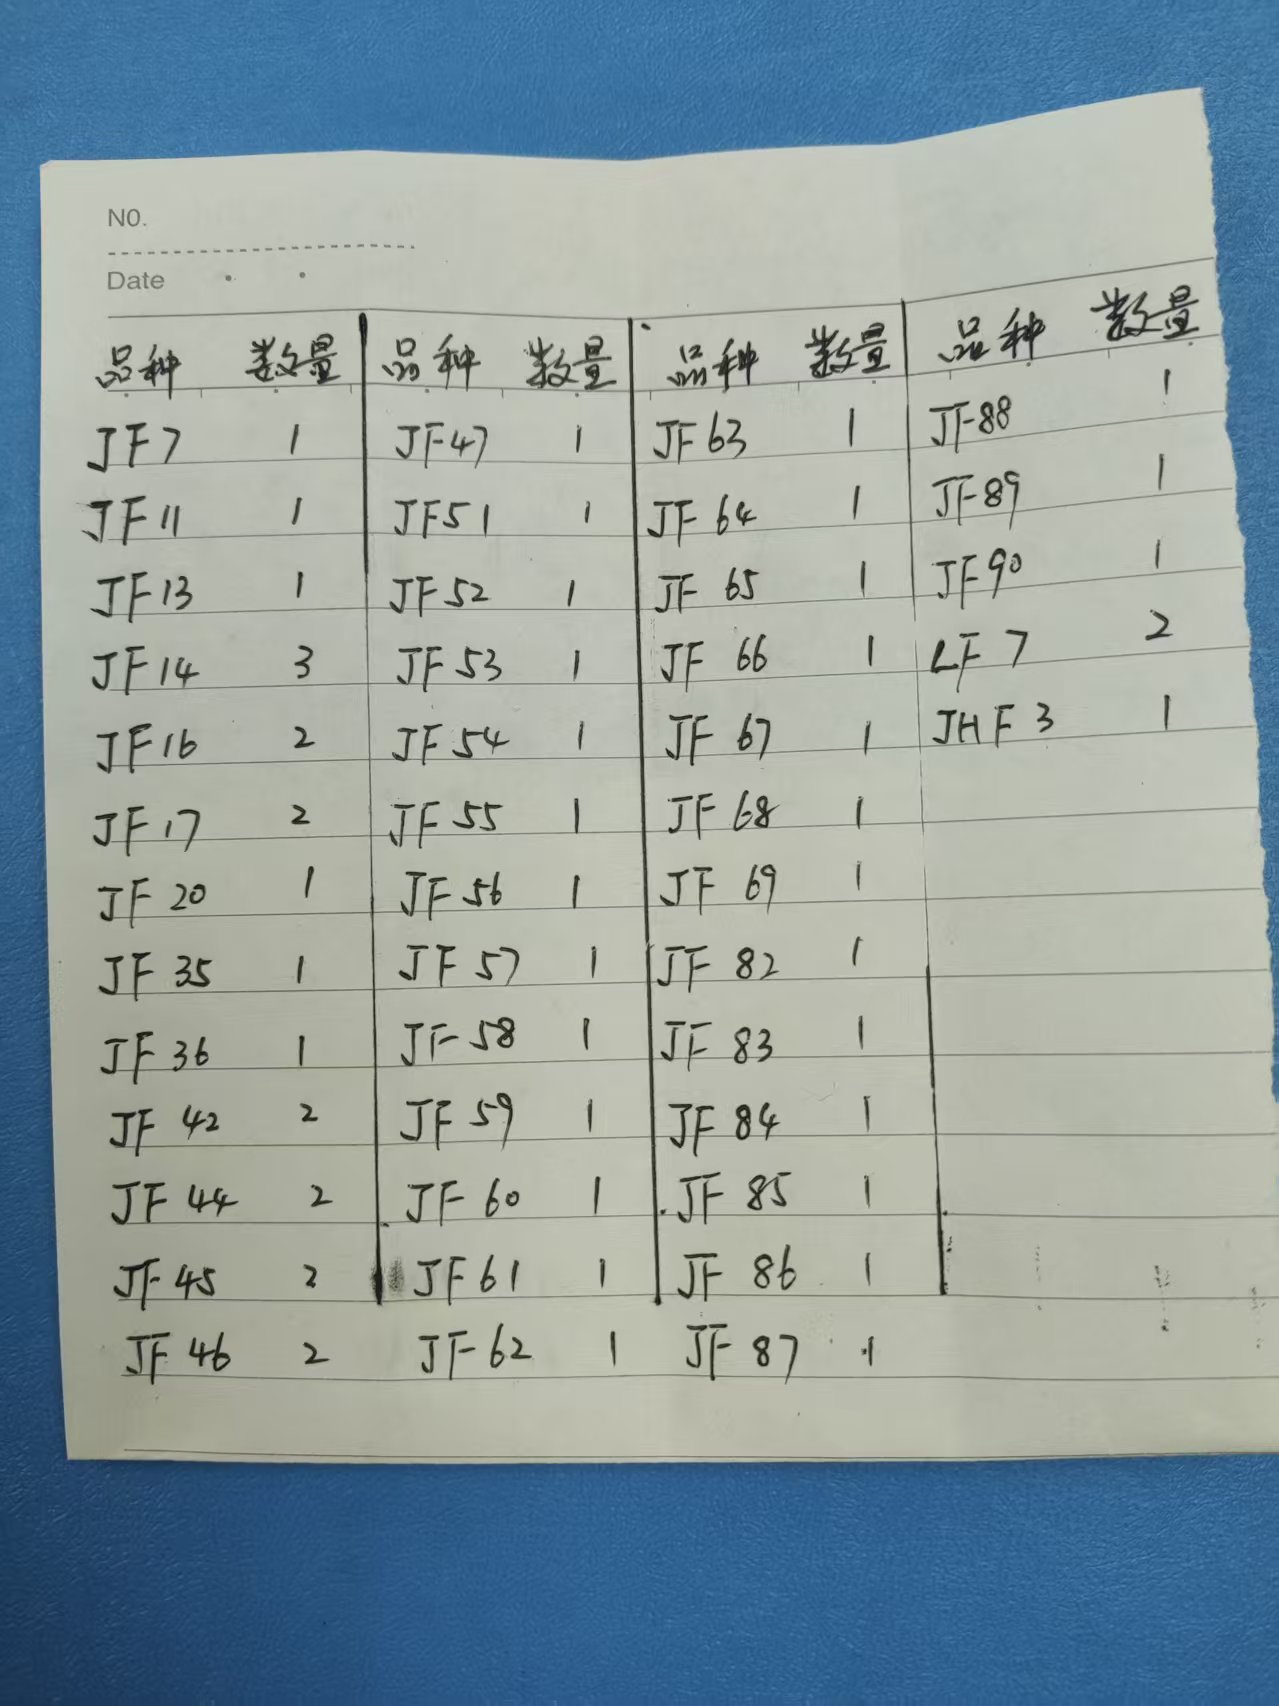 NO.
Date
品种 数量 品种 数量 品种 数量 品种 数量
JF7 1 JF47 1 JF63 1 JF88 1
JF11 1 JF51 1 JF64 1 JF89 1
JF13 1 JF52 1 JF65 1 JF90 1
JF14 3 JF53 1 JF66 1 LF7 2
JF16 2 JF54 1 JF67 1 JHF3 1
JF17 2 JF55 1 JF68 1
JF20 1 JF56 1 JF69 1
JF35 1 JF57 1 JF82 1
JF36 1 JF58 1 JF83 1
JF42 2 JF59 1 JF84 1
JF44 2 JF60 1 JF85 1
JF45 2 JF61 1 JF86 1
JF46 2 JF62 1 JF87 1